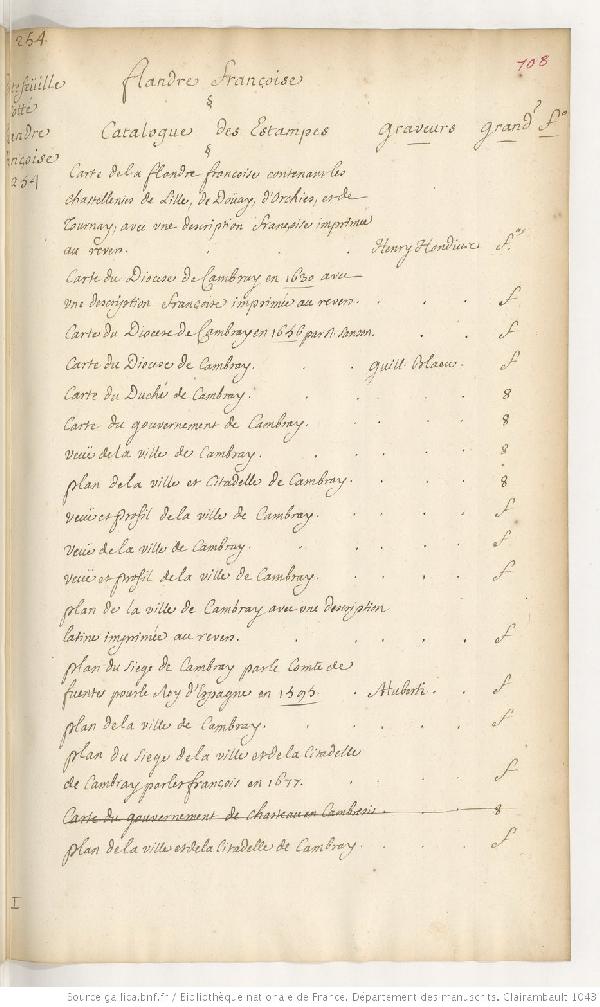 254.
708
Portefeüille
cotté
flandre
françoise
254
flandre Françoise
§
Catalogue des Estampes Graveurs grand.r f.o
§
Carte de la flandre françoise contenant les
chastellenies de Lille, de Doüay, d'Orchies, et de
Tournay, avec une description françoise imprimée
au revers. Henry Hondius. f.o
Carte du Diocese de Cambray en 1630 avec
une description françoise imprimée au revers. f
Carte du Diocese de Cambray en 1656 par N. Sanson. f
Carte du Diocese de Cambray. Guill. Blaeu. f
Carte du Duché de Cambray. 8
Carte du gouvernement de Cambray. 8
veüe de la ville de Cambray. 8
plan de la ville et Citadelle de Cambray. 8
veüe et profil de la ville de Cambray. f
veüe de la ville de Cambray. f
veüe et profil de la ville de Cambray. f
plan de la ville de Cambray avec une description
latine imprimée au revers. f
plan du siege de Cambray par le Comte de
fuentes pour le Roy d'Espagne en 1595. f
plan de la ville de Cambray. f
plan du siege de la ville et de la Citadelle
de Cambray par les françois en 1677. f
Carte du gouvernement de Chasteau en Cambresis. 8
plan de la ville et de la Citadelle de Cambray. f
I
Source gallica.bnf.fr / Bibliothèque nationale de France. Département des manuscrits. Clairambault 1043